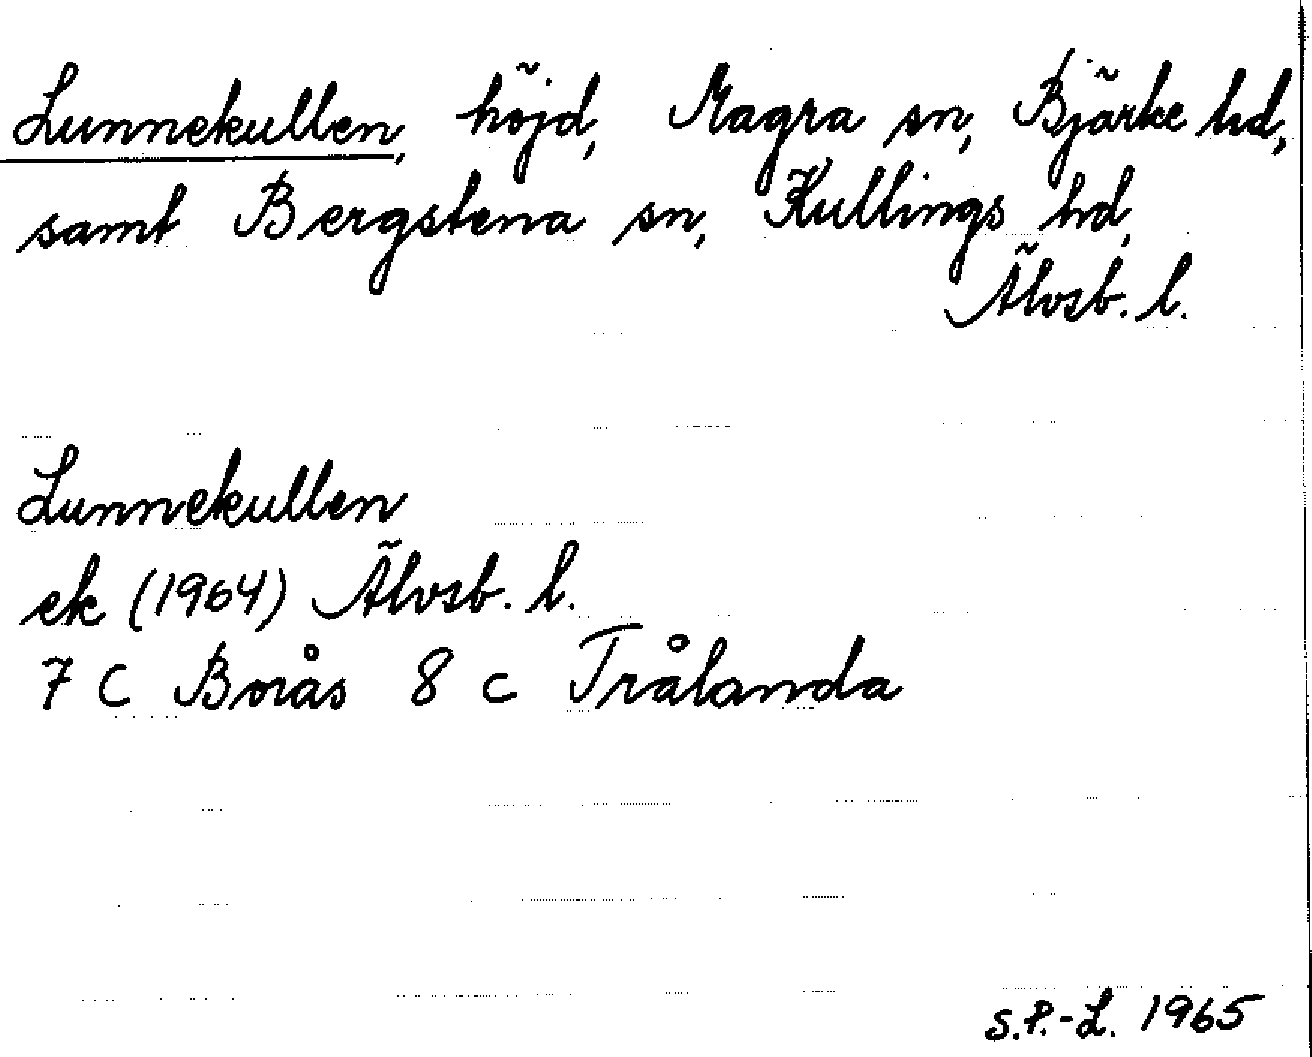 Lunnekullen, höjd, Magra sn, Bjärke hd,
samt Bergstena sn, Kullings hd,
Älvsb. l.
Lunnekullen
ek (1964) Älvsb. l.
7 C Borås 8 c Trålanda
S.P.-L. 1965